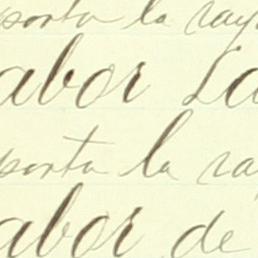 porta la raya
labor La
porta la raya
labor de